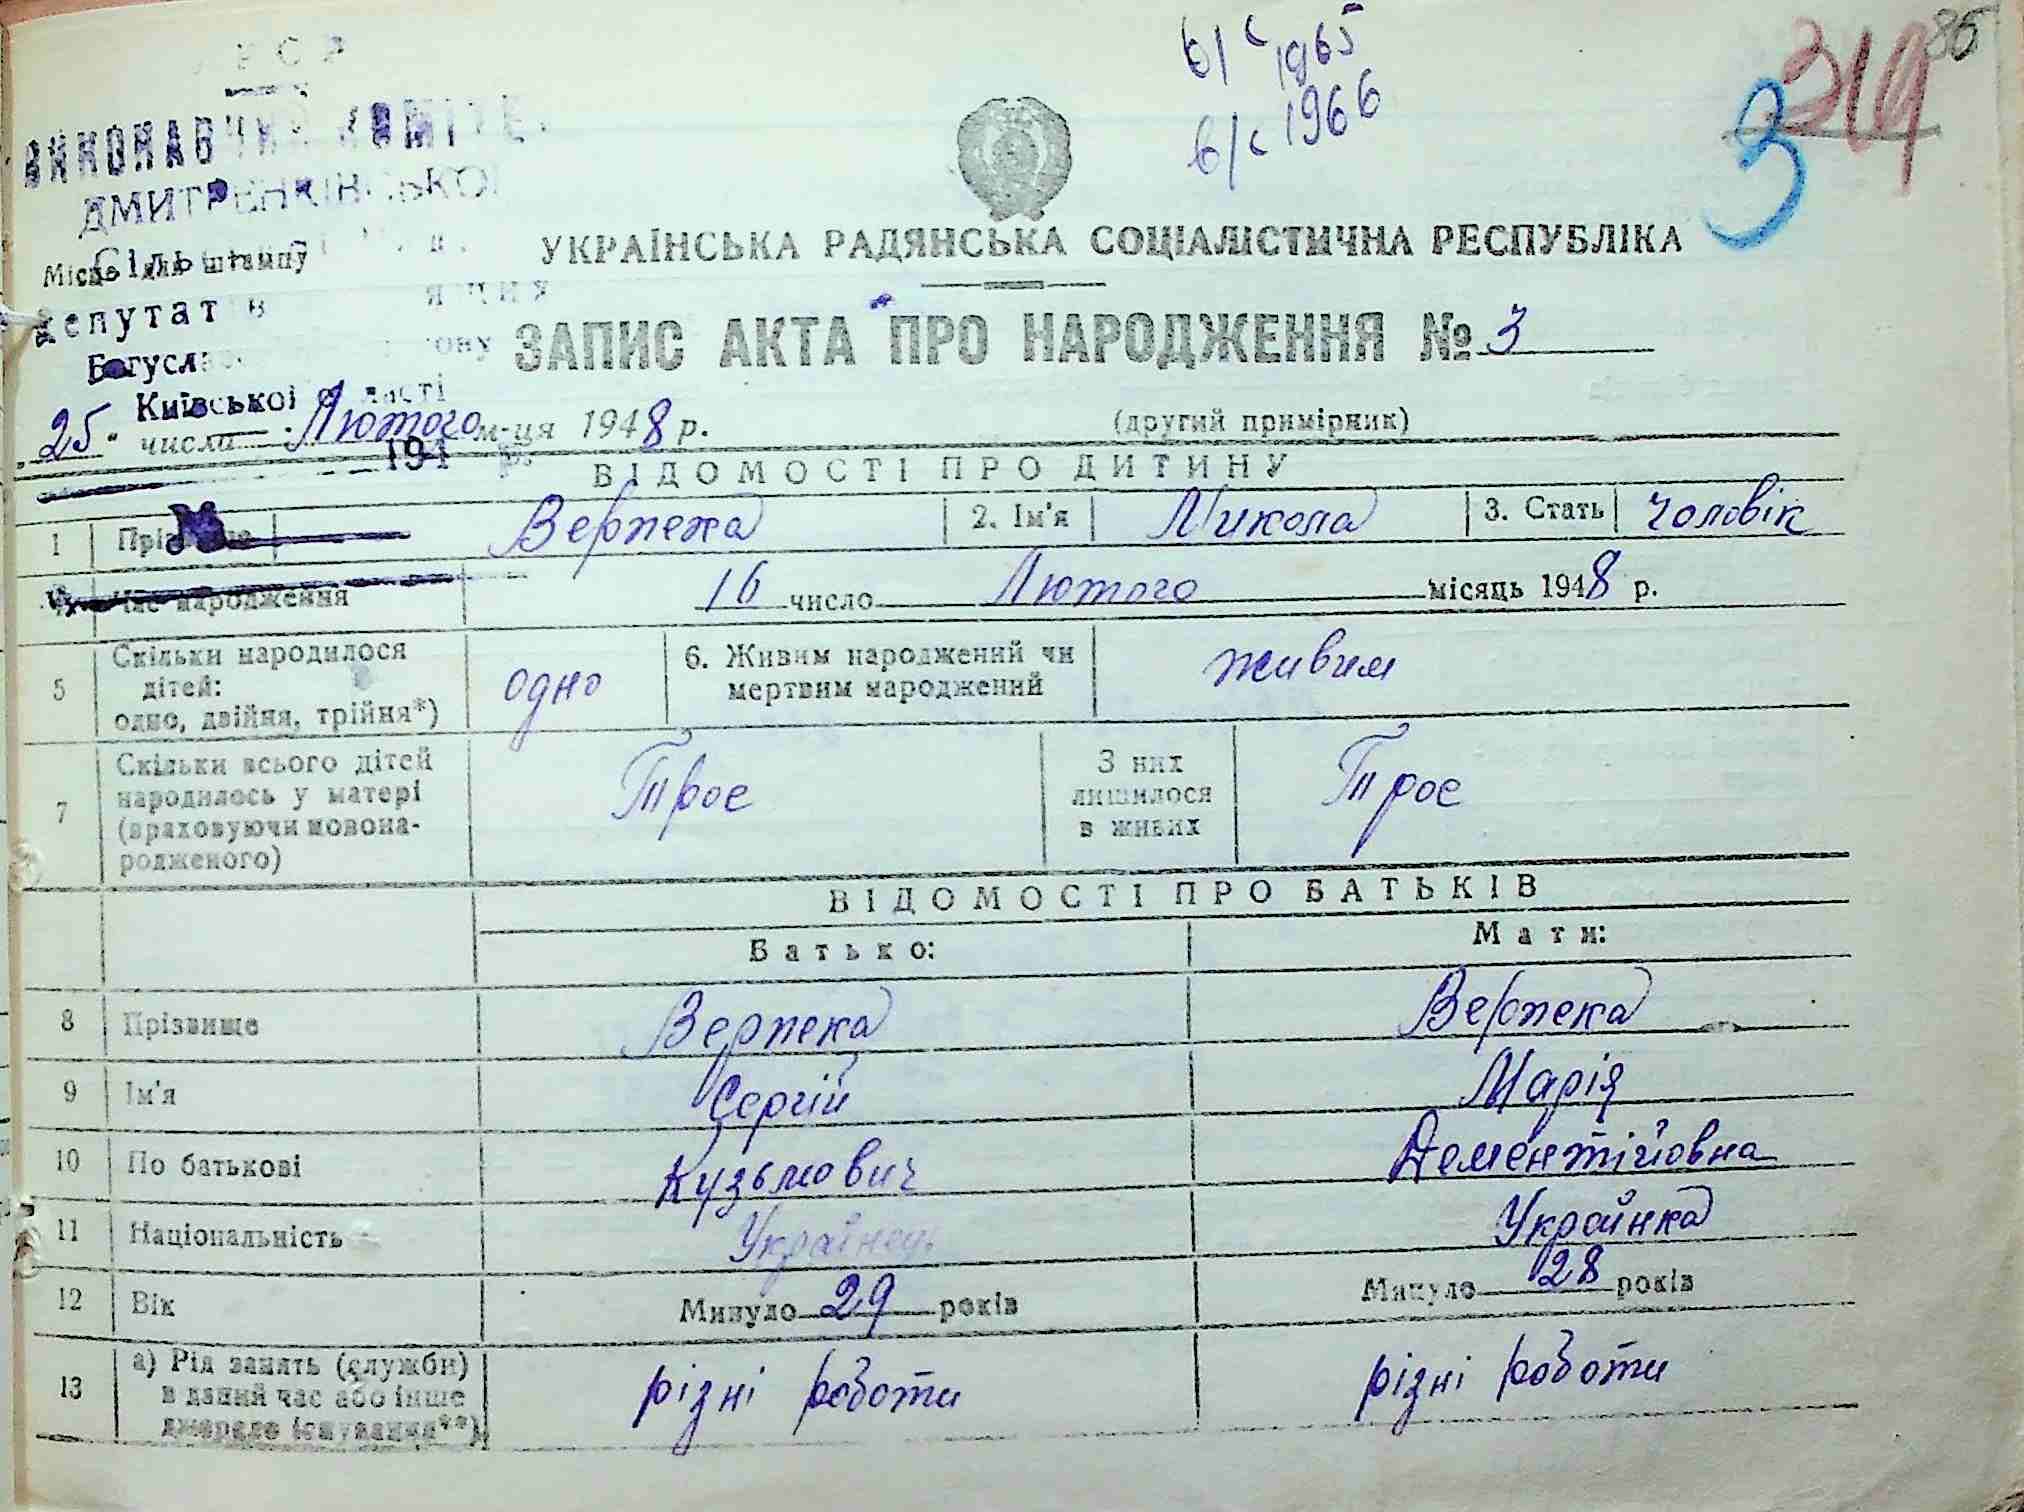 УРСР
ВИКОНАВЧИЙ КОМІТЕТ
ДМИТРЕНКІВСЬКОЇ
Місце для штампу
депутатів
Київської області
194 р.
в/с 1965
в/с 1966
319
86
3
УКРАЇНСЬКА РАДЯНСЬКА СОЦІАЛІСТИЧНА РЕСПУБЛІКА
ЗАПИС АКТА ПРО НАРОДЖЕННЯ № 3
„25“ числа Лютого м-ця 1948 р.
(другий примірник)
ВІДОМОСТІ ПРО ДИТИНУ
1 Прізвище Верпека 2. Ім'я Микола 3. Стать чоловік
Час народження 16 число Лютого місяць 1948 р.
5 Скільки народилося дітей: одно, двійня, трійня*) одно 6. Живим народжений чи мертвим народжений живим
7 Скільки всього дітей народилось у матері (враховуючи новонародженого) Троє З них лишилося в живих Троє
ВІДОМОСТІ ПРО БАТЬКІВ
Батько: Мати:
8 Прізвище Верпека Верпека
9 Ім'я Сергій Марія
10 По батькові Кузьмович Дементійовна
11 Національність Українець Українка
12 Вік Минуло 29 років Минуло 28 років
13 а) Рід занять (служби) в даний час або інше джерело існування**) різні роботи різні роботи